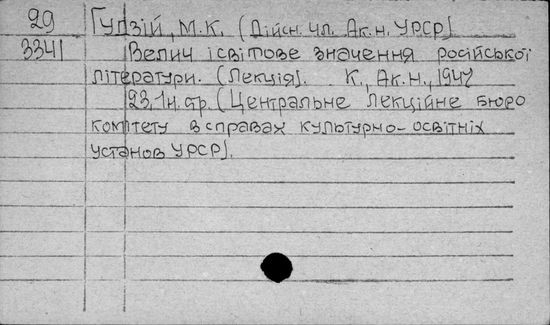 29 Гудзій, М.К. (Дійсн. чл. Ак. н. УРСР).
3341 Велич і світове значення російської
літератури. (Лекція). К., Ак. н., 1947
23, 1 н. стр. (Центральне лекційне бюро
комітету в справах культурно-освітніх
установ УРСР).